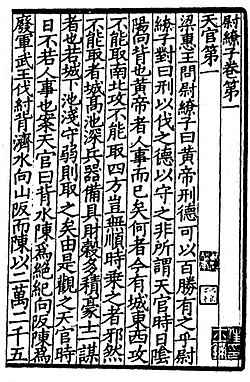 尉繚子卷第一
天官第一
梁惠王問尉繚子曰黃帝刑德可以百勝有之乎尉
繚子對曰刑以伐之德以守之非所謂天官時日陰
陽向背也黃帝者人事而已矣何者今有城東西攻
不能取南北攻不能取四方豈無順時乘之者邪然
不能取者城高池深兵器備具財穀多積豪士一謀
者也若城下池淺守弱則取之矣由是觀之天官時
日不若人事也案天官曰背水陳爲絶紀向阪陳爲
廢軍武王伐紂背濟水向山阪而陳以二萬二千五